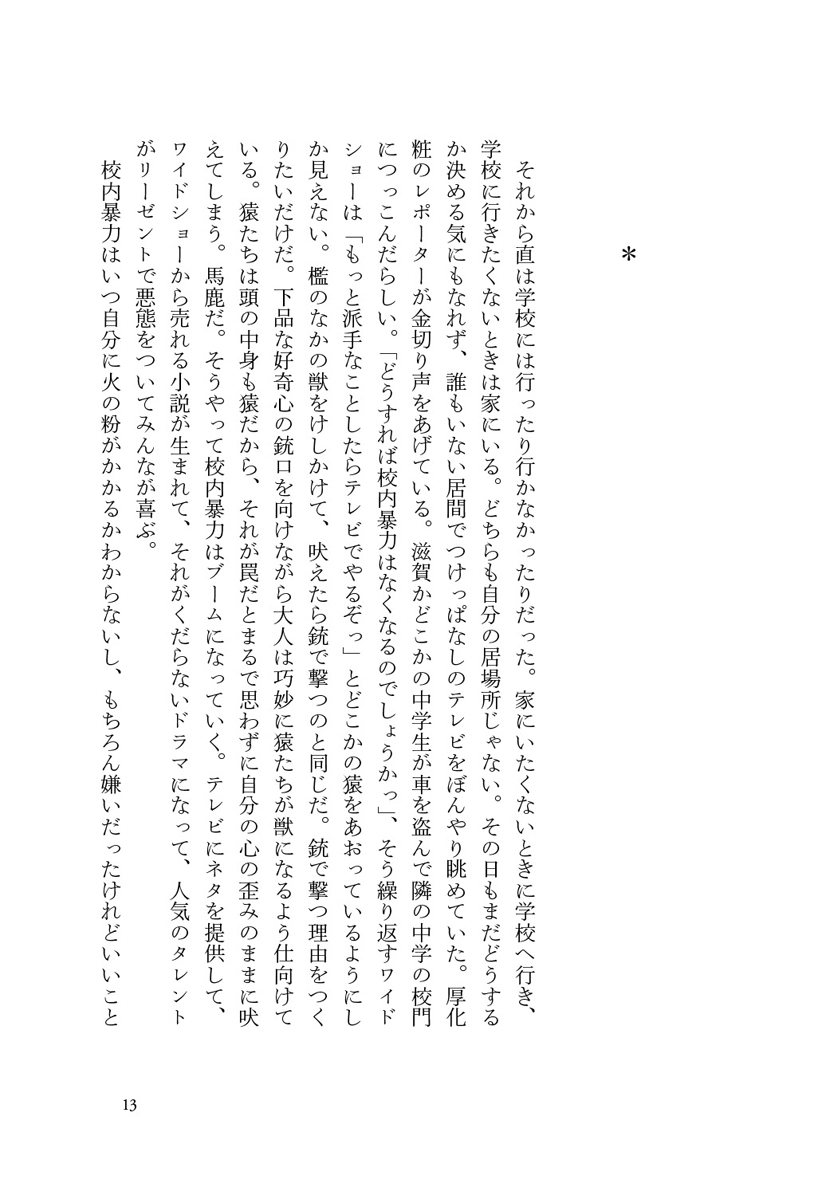 ＊
　それから直は学校には行ったり行かなかったりだった。家にいたくないときに学校へ行き、
学校に行きたくないときは家にいる。どちらも自分の居場所じゃない。その日もまだどうする
か決める気にもなれず、誰もいない居間でつけっぱなしのテレビをぼんやり眺めていた。厚化
粧のレポーターが金切り声をあげている。滋賀かどこかの中学生が車を盗んで隣の中学の校門
につっこんだらしい。「どうすれば校内暴力はなくなるのでしょうかっ」、そう繰り返すワイド
ショーは「もっと派手なことしたらテレビでやるぞっ」とどこかの猿をあおっているようにし
か見えない。檻のなかの獣をけしかけて、吠えたら銃で撃つのと同じだ。銃で撃つ理由をつく
りたいだけだ。下品な好奇心の銃口を向けながら大人は巧妙に猿たちが獣になるよう仕向けて
いる。猿たちは頭の中身も猿だから、それが罠だとまるで思わずに自分の心の歪みのままに吠
えてしまう。馬鹿だ。そうやって校内暴力はブームになっていく。テレビにネタを提供して、
ワイドショーから売れる小説が生まれて、それがくだらないドラマになって、人気のタレント
がリーゼントで悪態をついてみんなが喜ぶ。
　校内暴力はいつ自分に火の粉がかかるかわからないし、もちろん嫌いだったけれどいいこと
13